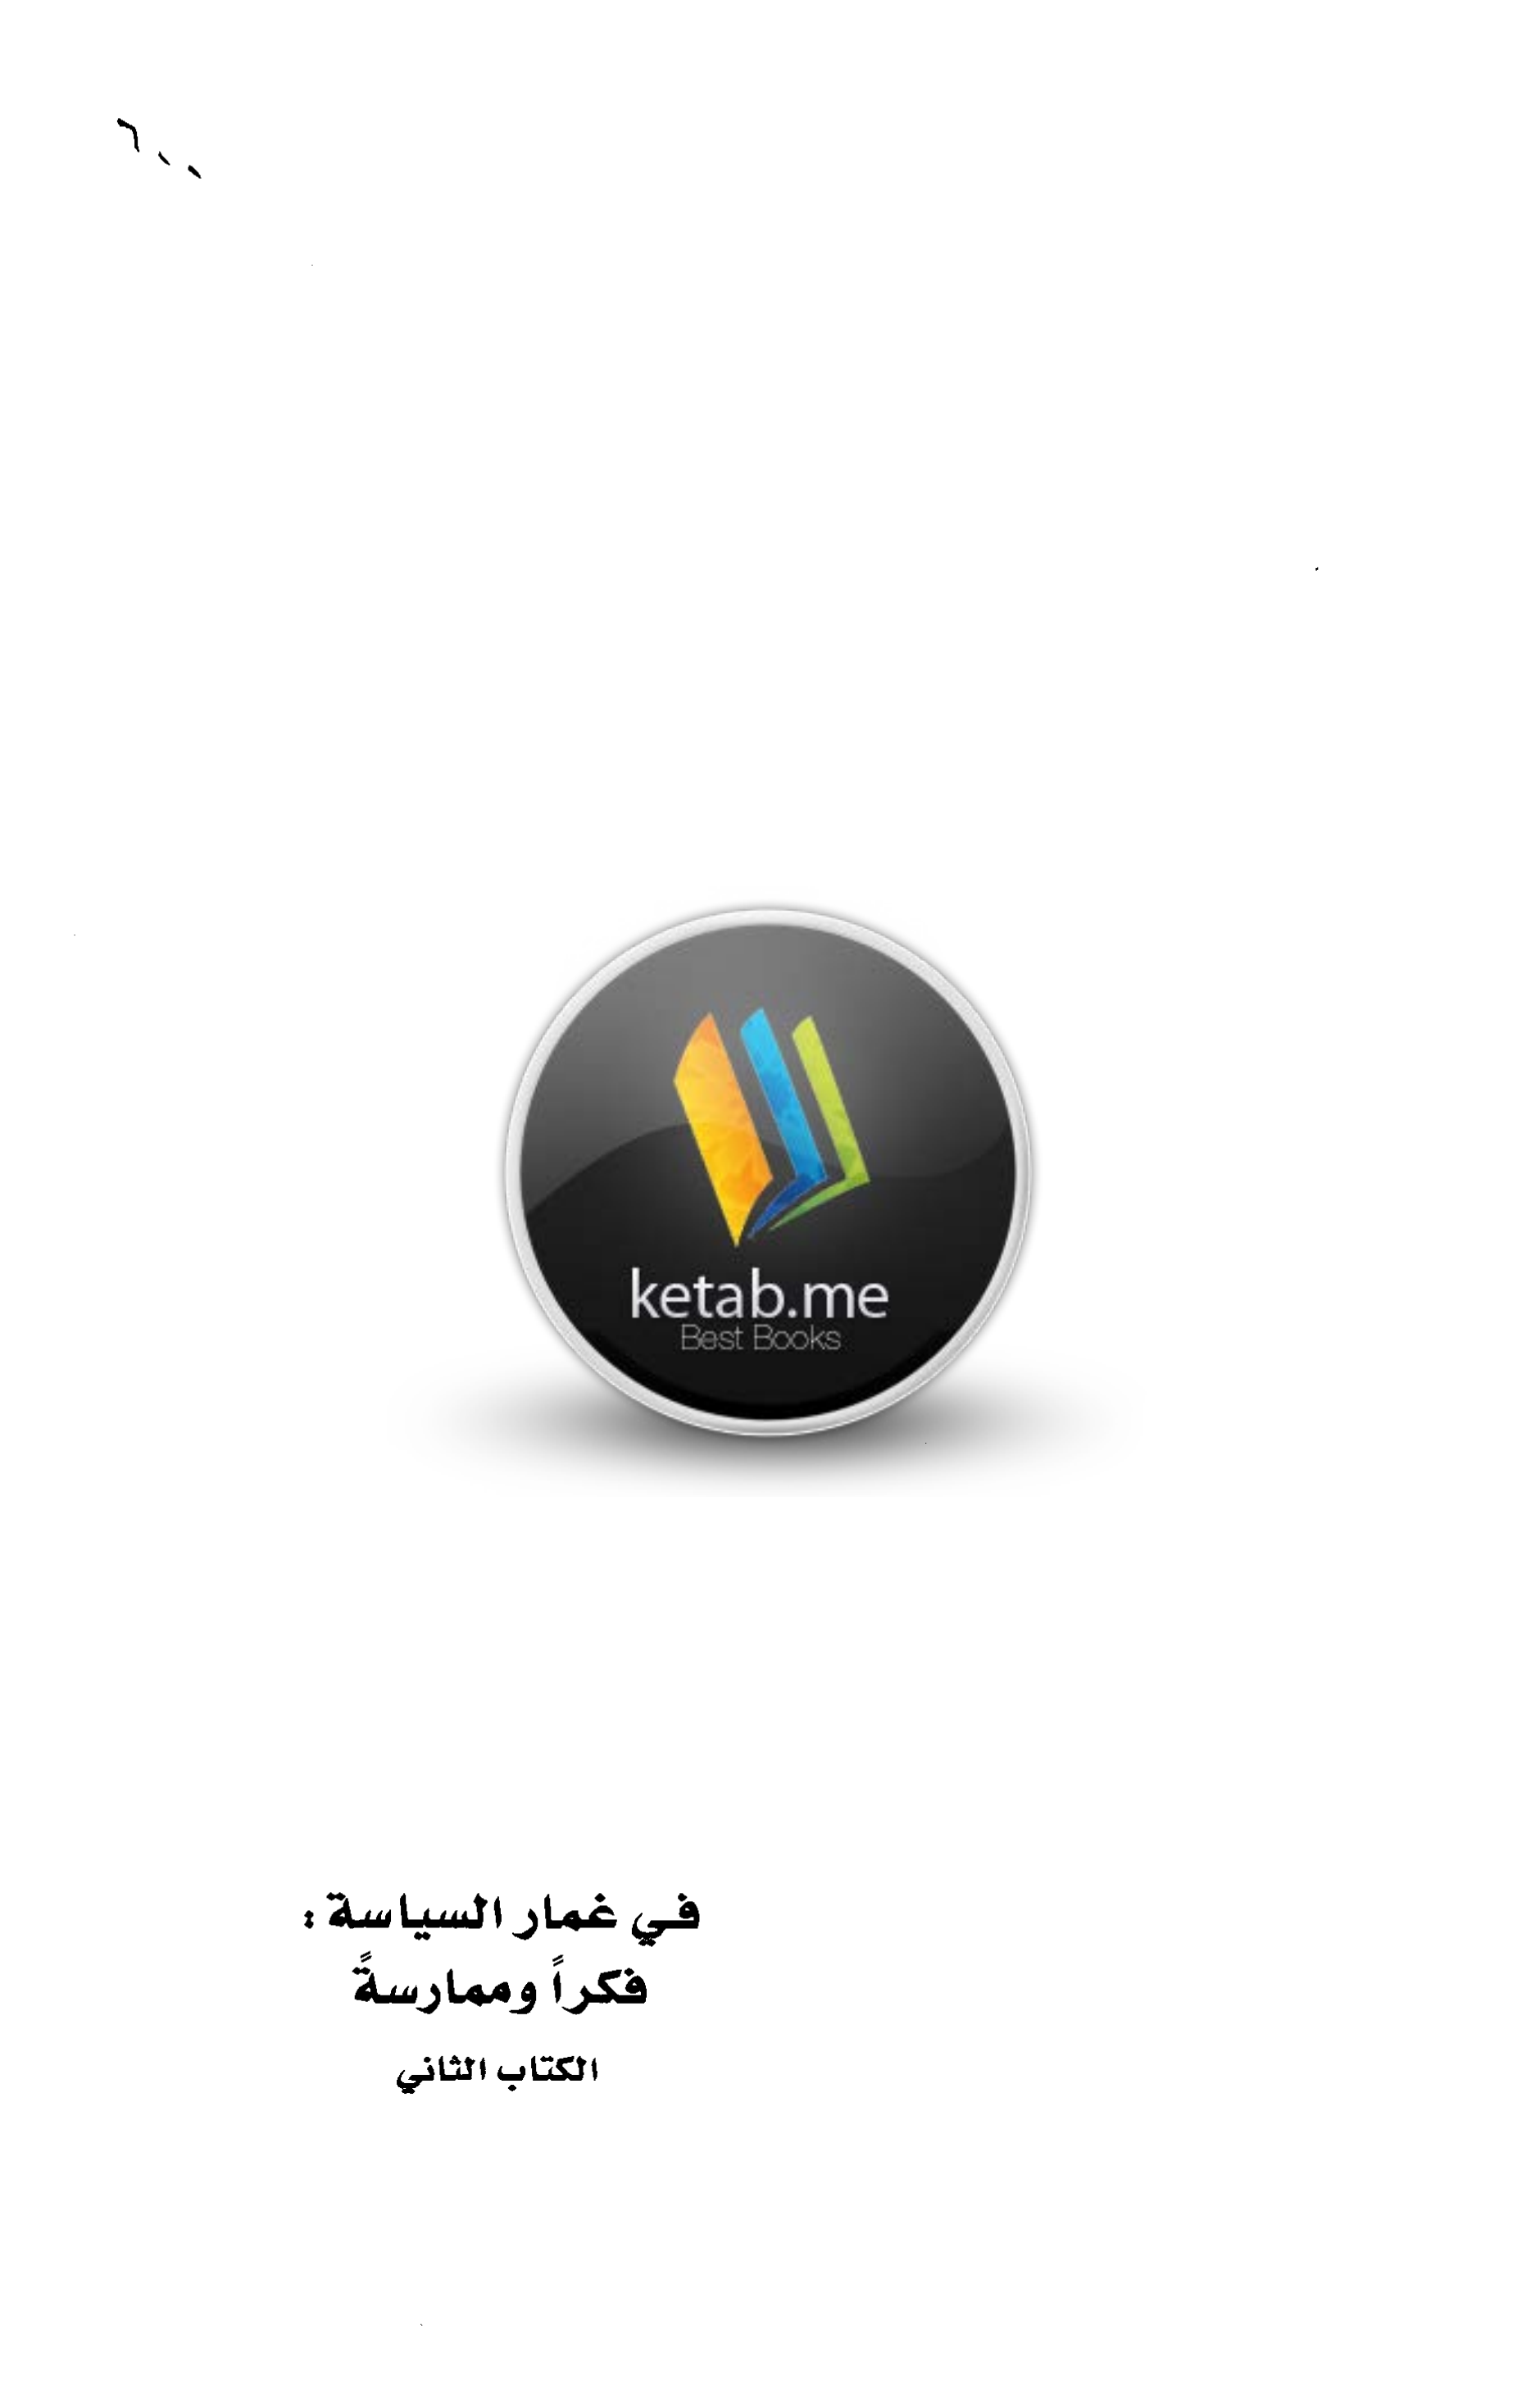 ٦٠٠
ketab.me
Best Books
في غمار السياسة :
فكراً وممارسةً
الكتاب الثاني